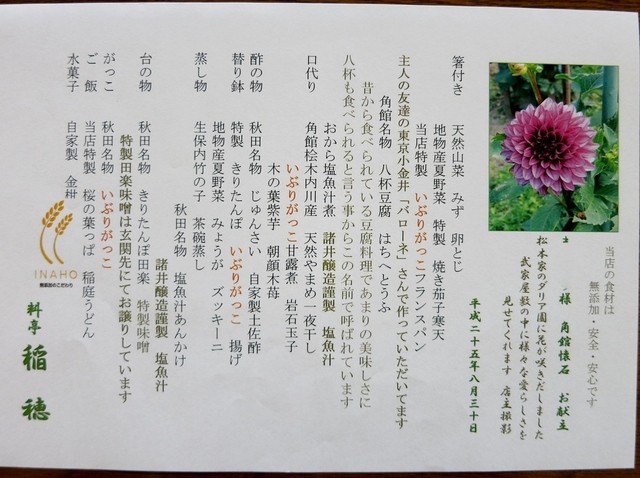 当店の食材は
無添加・安全・安心です
様 角館懐石 お献立
松本家のダリア園に花が咲きだしました
武家屋敷の中に様々な愛らしさを
見せてくれます 店主撮影
平成二十五年八月三十日
箸付き 天然山菜 みず 卵とじ
地物産夏野菜 特製 焼き茄子寒天
当店特製 いぶりがっこフランスパン
主人の友達の東京小金井「パローネ」さんで作っていただいてます
角館名物 八杯豆腐 はちへとうふ
昔から食べられている豆腐料理であまりの美味しさに
八杯も食べられると言う事からこの名前で呼ばれています
おから塩魚汁煮 諸井醸造謹製 塩魚汁
口代り 角館桧木内川産 天然やまめ一夜干し
いぶりがっこ甘露煮 岩石玉子
木の葉紫芋 朝顔木苺
酢の物 秋田名物 じゅんさい 自家製土佐酢
替り鉢 特製 きりたんぽ いぶりがっこ 揚げ
地物産夏野菜 みょうが ズッキーニ
蒸し物 生保内竹の子 茶碗蒸し
秋田名物 塩魚汁あんかけ
諸井醸造謹製 塩魚汁
台の物 秋田名物 きりたんぽ田楽 特製味噌
特製田楽味噌は玄関先にてお譲りしています
がっこ 秋田名物 いぶりがっこ
ご飯 当店特製 桜の葉っぱ 稲庭うどん
水菓子 自家製 金柑
INAHO
無添加のこだわり
料亭 稲穂